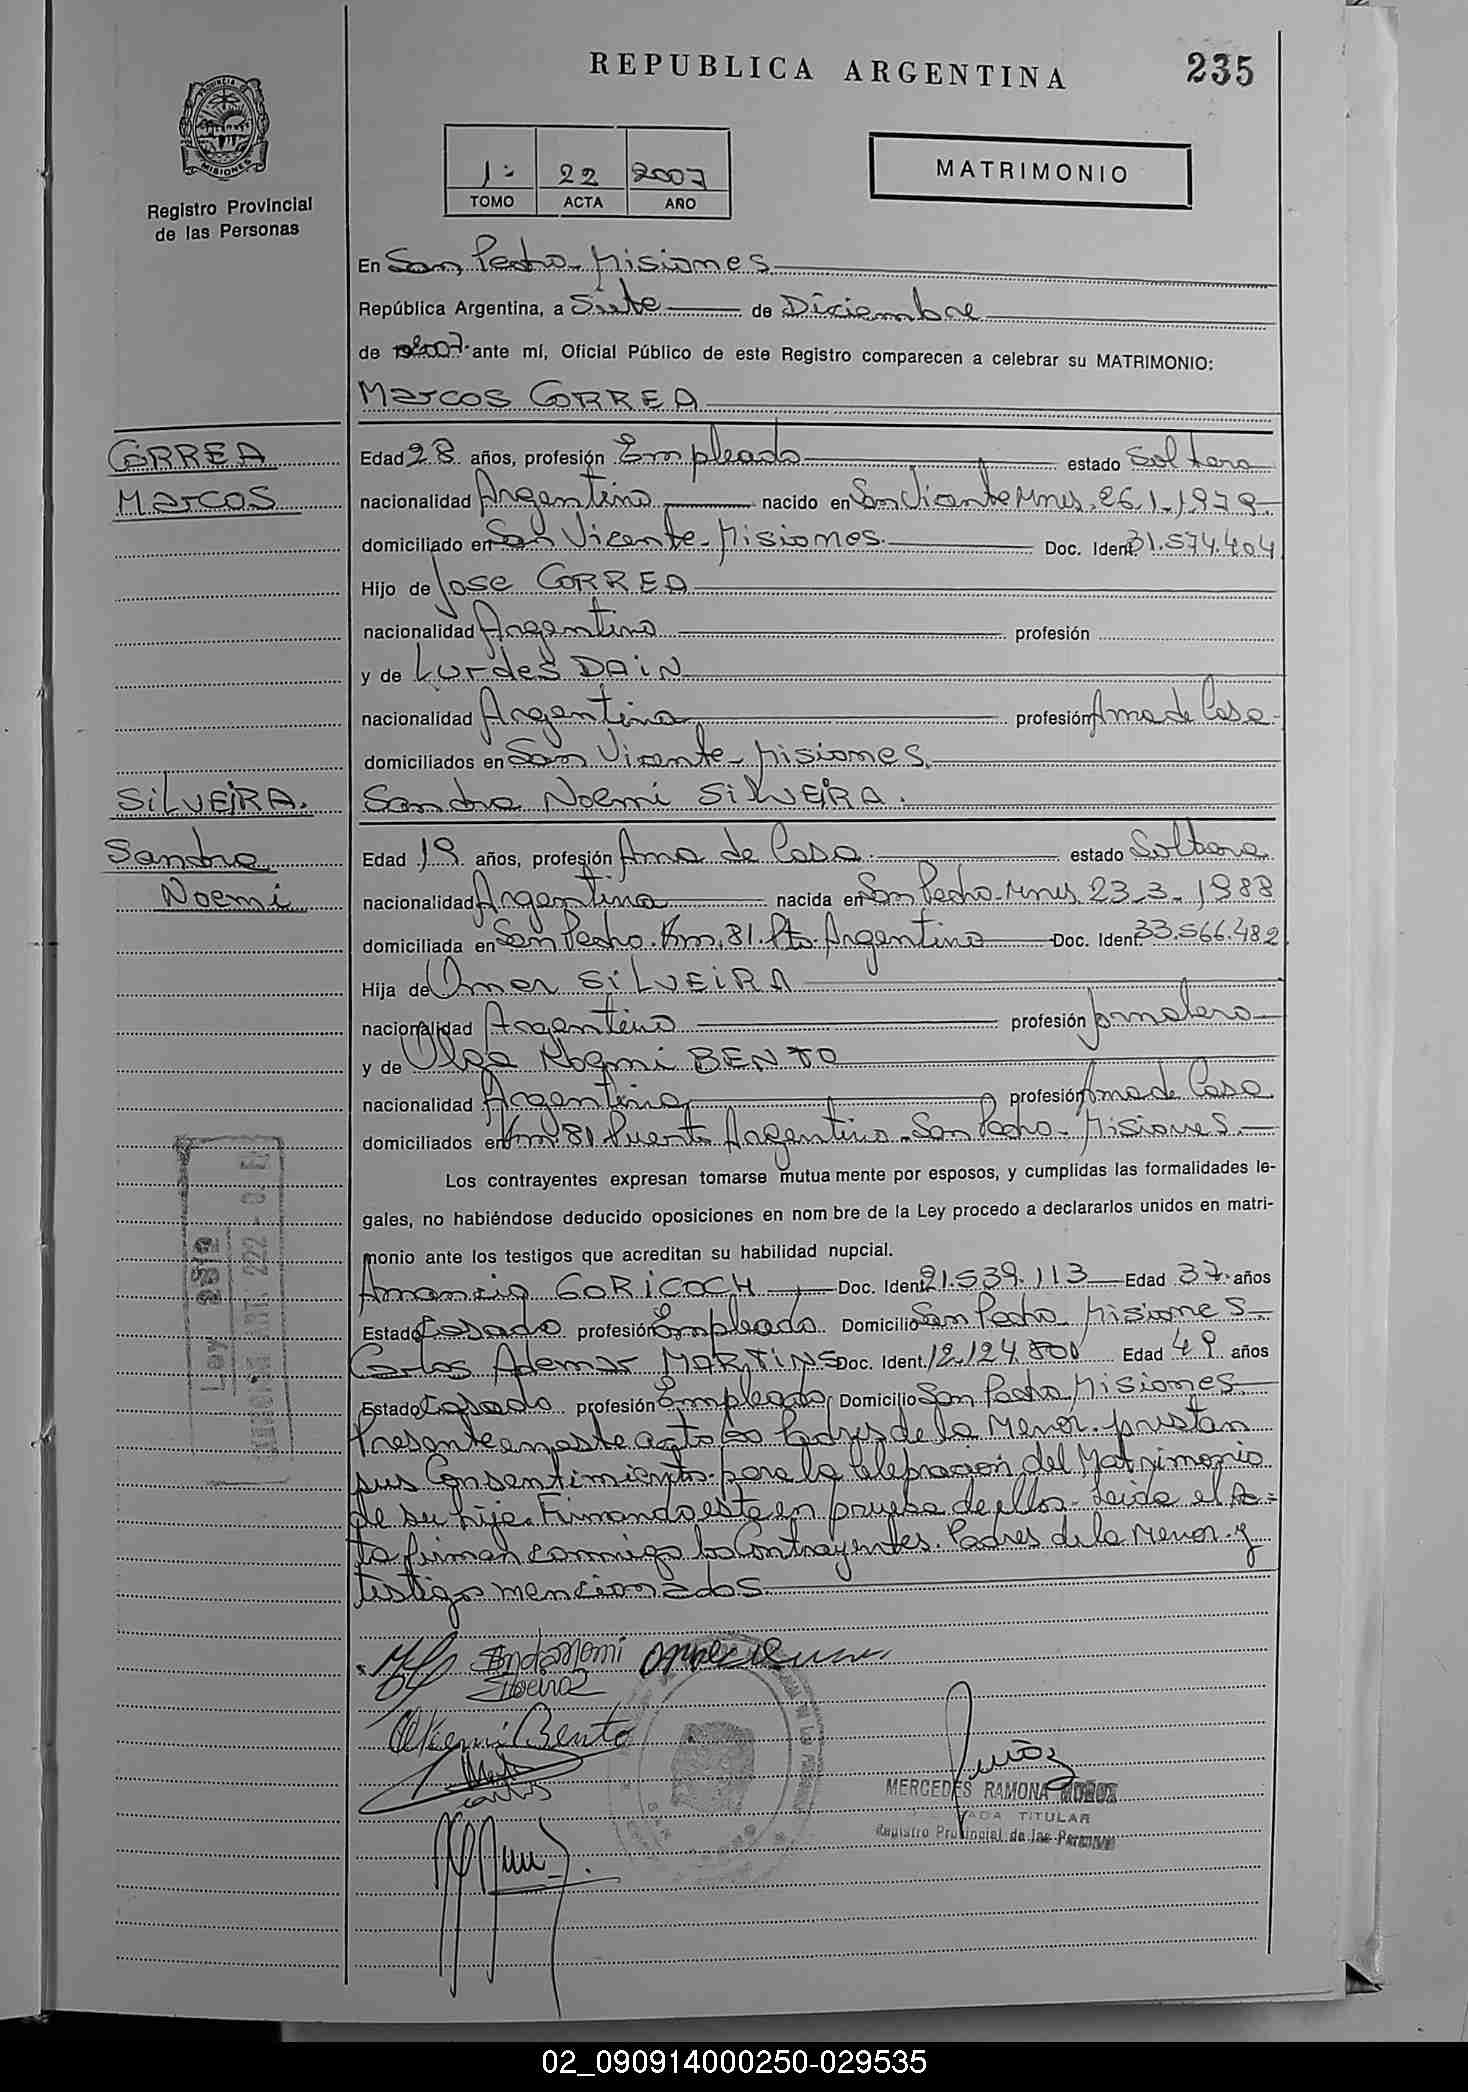 REPUBLICA ARGENTINA
235
PROVINCIA DE
MISIONES
Registro Provincial
de las Personas
1º 22 2007
TOMO ACTA AÑO
MATRIMONIO
En San Pedro - Misiones
República Argentina, a Siete de Diciembre
de 2007 ante mí, Oficial Público de este Registro comparecen a celebrar su MATRIMONIO:
Marcos CORREA
CORREA
Marcos
Edad 28 años, profesión Empleado estado Soltero
nacionalidad Argentino nacido en San Vicente Mnes. 26.1.1979
domiciliado en San Vicente - Misiones Doc. Ident. 31.574.404
Hijo de Jose CORREA
nacionalidad Argentino profesión
y de Lurdes DAIN
nacionalidad Argentina profesión Ama de Casa
domiciliados en San Vicente - Misiones
SILVEIRA.
Sandra
Noemi
Sandra Noemi SILVEIRA.
Edad 19 años, profesión Ama de Casa estado Soltera
nacionalidad Argentina nacida en San Pedro - Mnes. 23.3.1988
domiciliada en San Pedro. Km. 81. Pto. Argentino Doc. Ident. 33.566.482
Hija de Omar SILVEIRA
nacionalidad Argentino profesión Jornalero
y de Olga Noemi BENTO
nacionalidad Argentina profesión Ama de Casa
domiciliados en Km. 81 Puerto Argentino - San Pedro - Misiones
Los contrayentes expresan tomarse mutua mente por esposos, y cumplidas las formalidades le-
gales, no habiéndose deducido oposiciones en nom bre de la Ley procedo a declararlos unidos en matri-
monio ante los testigos que acreditan su habilidad nupcial.
Amancio GORICOCH Doc. Ident. 21.539.113 Edad 37 años
Estado Casado profesión Empleado Domicilio San Pedro Misiones
Carlos Ademar MARTINS Doc. Ident. 12.124.800 Edad 49 años
Estado Casado profesión Empleado Domicilio San Pedro Misiones
Presente en este acto los Padres de la Menor. prestan
sus Consentimiento para la Celebracion del Matrimonio
de su hija. Firmando este en prueba de ellos. Leida el Ac-
ta firman conmigo los Contrayentes. Padres de la Menor. y
testigo mencionados
Ley 2812
ART. 222
Noemi
Silveira
Bento
Muñoz
MERCEDES RAMONA MUÑOZ
TITULAR
Registro Provincial de las Personas
02_090914000250-029535